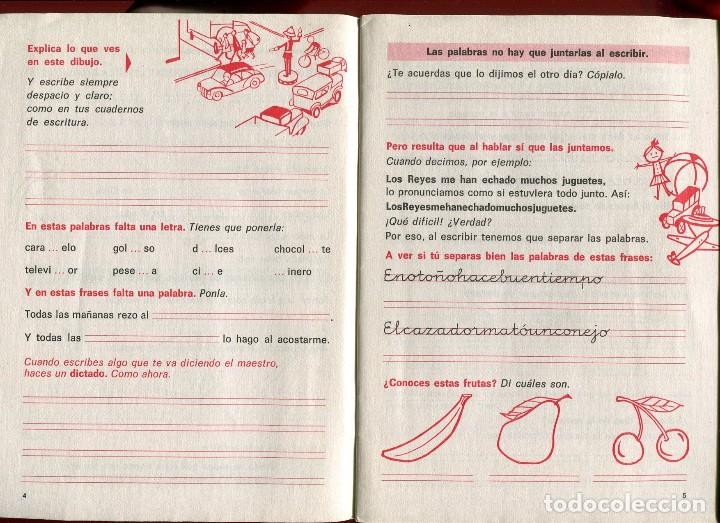 Explica lo que ves
en este dibujo.
Y escribe siempre
despacio y claro;
como en tus cuadernos
de escritura.
En estas palabras falta una letra. Tienes que ponerla:
cara ... elo gol ... so d ... lces chocol ... te
televi ... or pese ... a ci ... e ... inero
Y en estas frases falta una palabra. Ponla.
Todas las mañanas rezo al
Y todas las lo hago al acostarme.
Cuando escribes algo que te va diciendo el maestro,
haces un dictado. Como ahora.
4
Las palabras no hay que juntarlas al escribir.
¿Te acuerdas que lo dijimos el otro día? Cópialo.
Pero resulta que al hablar sí que las juntamos.
Cuando decimos, por ejemplo:
Los Reyes me han echado muchos juguetes,
lo pronunciamos como si estuviera todo junto. Así:
LosReyesmehanechadomuchosjuguetes.
¡Qué difícil! ¿Verdad?
Por eso, al escribir tenemos que separar las palabras.
A ver si tú separas bien las palabras de estas frases:
Enotoñohacebuentiempo
Elcazadormatóunconejo
¿Conoces estas frutas? Di cuáles son.
5
todocoleccion